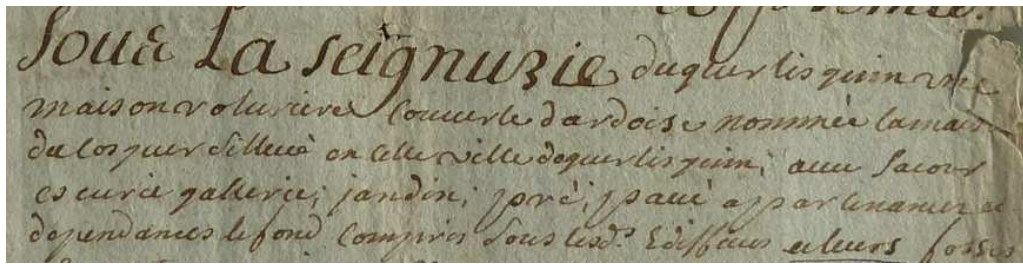 Soue La seignurie duguerlisquin une
maison voluriere Couverte dardoise nommée lamais
du Cosquer sittuée en Celle ville deguerlisquin; avec sa cour
escurie gallerie; jardin; pré; pavé appartenances et
dependances lefond Compris sous lesd.s Ediffices eleurs fosses